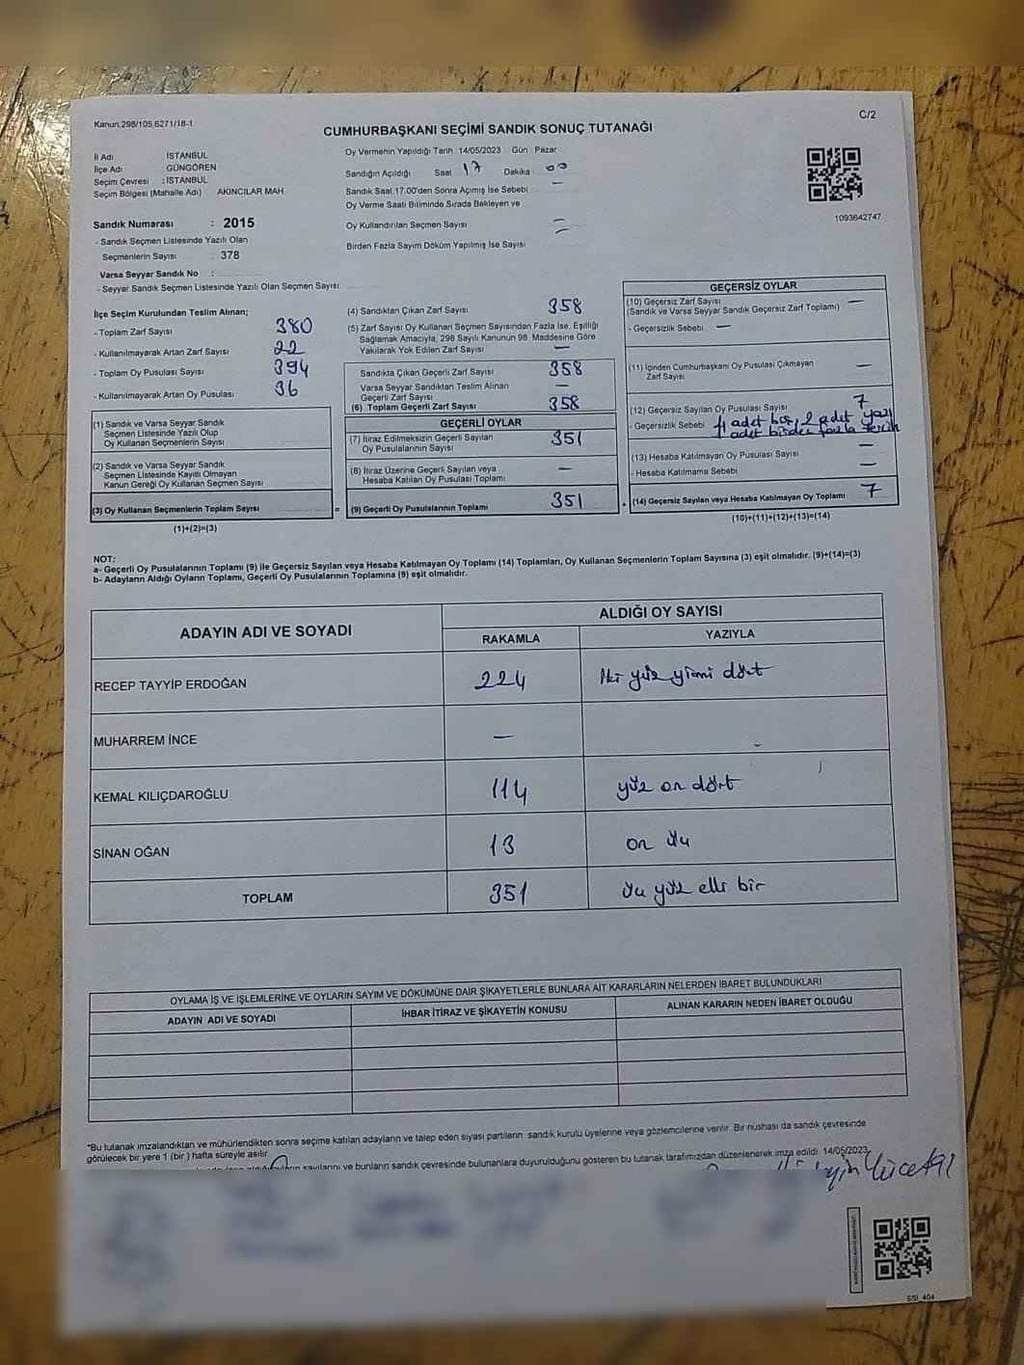 Kanun.298/105,6271/18-1
C/2
CUMHURBAŞKANI SEÇİMİ SANDIK SONUÇ TUTANAĞI
İl Adı İSTANBUL
İlçe Adı GÜNGÖREN
Seçim Çevresi : İSTANBUL
Seçim Bölgesi (Mahalle Adı) AKINCILAR MAH
Sandık Numarası : 2015
- Sandık Seçmen Listesinde Yazılı Olan
Seçmenlerin Sayısı : 378
Varsa Seyyar Sandık No :
- Seyyar Sandık Seçmen Listesinde Yazılı Olan Seçmen Sayısı
Oy Vermenin Yapıldığı Tarih : 14/05/2023 Gün : Pazar
Sandığın Açıldığı Saat 17 Dakika 00
Sandık Saat 17.00'den Sonra Açımış İse Sebebi —
Oy Verme Saati Bitiminde Sırada Bekleyen ve
Oy Kullandırılan Seçmen Sayısı
Birden Fazla Sayım Döküm Yapılmış İse Sayısı
1093642747
İlçe Seçim Kurulundan Teslim Alınan;
- Toplam Zarf Sayısı 380
- Kullanılmayarak Artan Zarf Sayısı 22
- Toplam Oy Pusulası Sayısı 394
- Kullanılmayarak Artan Oy Pusulası 36
(1) Sandık ve Varsa Seyyar Sandık
Seçmen Listesinde Yazılı Olup
Oy Kullanan Seçmenlerin Sayısı
(2) Sandık ve Varsa Seyyar Sandık
Seçmen Listesinde Kayıtlı Olmayan
Kanun Gereği Oy Kullanan Seçmen Sayısı
(3) Oy Kullanan Seçmenlerin Toplam Sayısı
(1)+(2)=(3)
(4) Sandıktan Çıkan Zarf Sayısı 358
(5) Zarf Sayısı Oy Kullanan Seçmen Sayısından Fazla İse, Eşitliği
Sağlamak Amacıyla, 298 Sayılı Kanunun 98. Maddesine Göre
Yakılarak Yok Edilen Zarf Sayısı —
Sandıkta Çıkan Geçerli Zarf Sayısı 358
Varsa Seyyar Sandıktan Teslim Alınan
Geçerli Zarf Sayısı —
(6) Toplam Geçerli Zarf Sayısı 358
GEÇERLİ OYLAR
(7) İtiraz Edilmeksizin Geçerli Sayılan
Oy Pusulalarının Sayısı 351
(8) İtiraz Üzerine Geçerli Sayılan veya
Hesaba Katılan Oy Pusulası Toplamı —
= (9) Geçerli Oy Pusulalarının Toplamı 351
GEÇERSİZ OYLAR
(10) Geçersiz Zarf Sayısı —
(Sandık ve Varsa Seyyar Sandık Geçersiz Zarf Toplamı)
- Geçersizlik Sebebi —
(11) İçinden Cumhurbaşkanı Oy Pusulası Çıkmayan
Zarf Sayısı —
(12) Geçersiz Sayılan Oy Pusulası Sayısı 7
- Geçersizlik Sebebi 4 adet boş, 2 adet yazı
1 adet birden fazla tercih
(13) Hesaba Katılmayan Oy Pusulası Sayısı —
- Hesaba Katılmama Sebebi —
+ (14) Geçersiz Sayılan veya Hesaba Katılmayan Oy Toplamı 7
(10)+(11)+(12)+(13)=(14)
NOT;
a- Geçerli Oy Pusulalarının Toplamı (9) ile Geçersiz Sayılan veya Hesaba Katılmayan Oy Toplamı (14) Toplamları, Oy Kullanan Seçmenlerin Toplam Sayısına (3) eşit olmalıdır. (9)+(14)=(3)
b- Adayların Aldığı Oyların Toplamı, Geçerli Oy Pusulalarının Toplamına (9) eşit olmalıdır.
ADAYIN ADI VE SOYADI
ALDIĞI OY SAYISI
RAKAMLA YAZIYLA
RECEP TAYYİP ERDOĞAN 224 İki yüz yirmi dört
MUHARREM İNCE —
KEMAL KILIÇDAROĞLU 114 yüz on dört
SİNAN OĞAN 13 on üç
TOPLAM 351 üç yüz elli bir
OYLAMA İŞ VE İŞLEMLERİNE VE OYLARIN SAYIM VE DÖKÜMÜNE DAİR ŞİKAYETLERLE BUNLARA AİT KARARLARIN NELERDEN İBARET BULUNDUKLARI
ADAYIN ADI VE SOYADI İHBAR İTİRAZ VE ŞİKAYETİN KONUSU ALINAN KARARIN NEDEN İBARET OLDUĞU
*Bu tutanak imzalandıktan ve mühürlendikten sonra seçime katılan adayların ve talep eden siyasi partilerin sandık kurulu üyelerine veya gözlemcilerine verilir. Bir nüshası da sandık çevresinde
görülecek bir yere 1 (bir) hafta süreyle asılır.
sayılarını ve bunların sandık çevresinde bulunanlara duyurulduğunu gösteren bu tutanak tarafımızdan düzenlenerek imza edildi. 14/05/2023